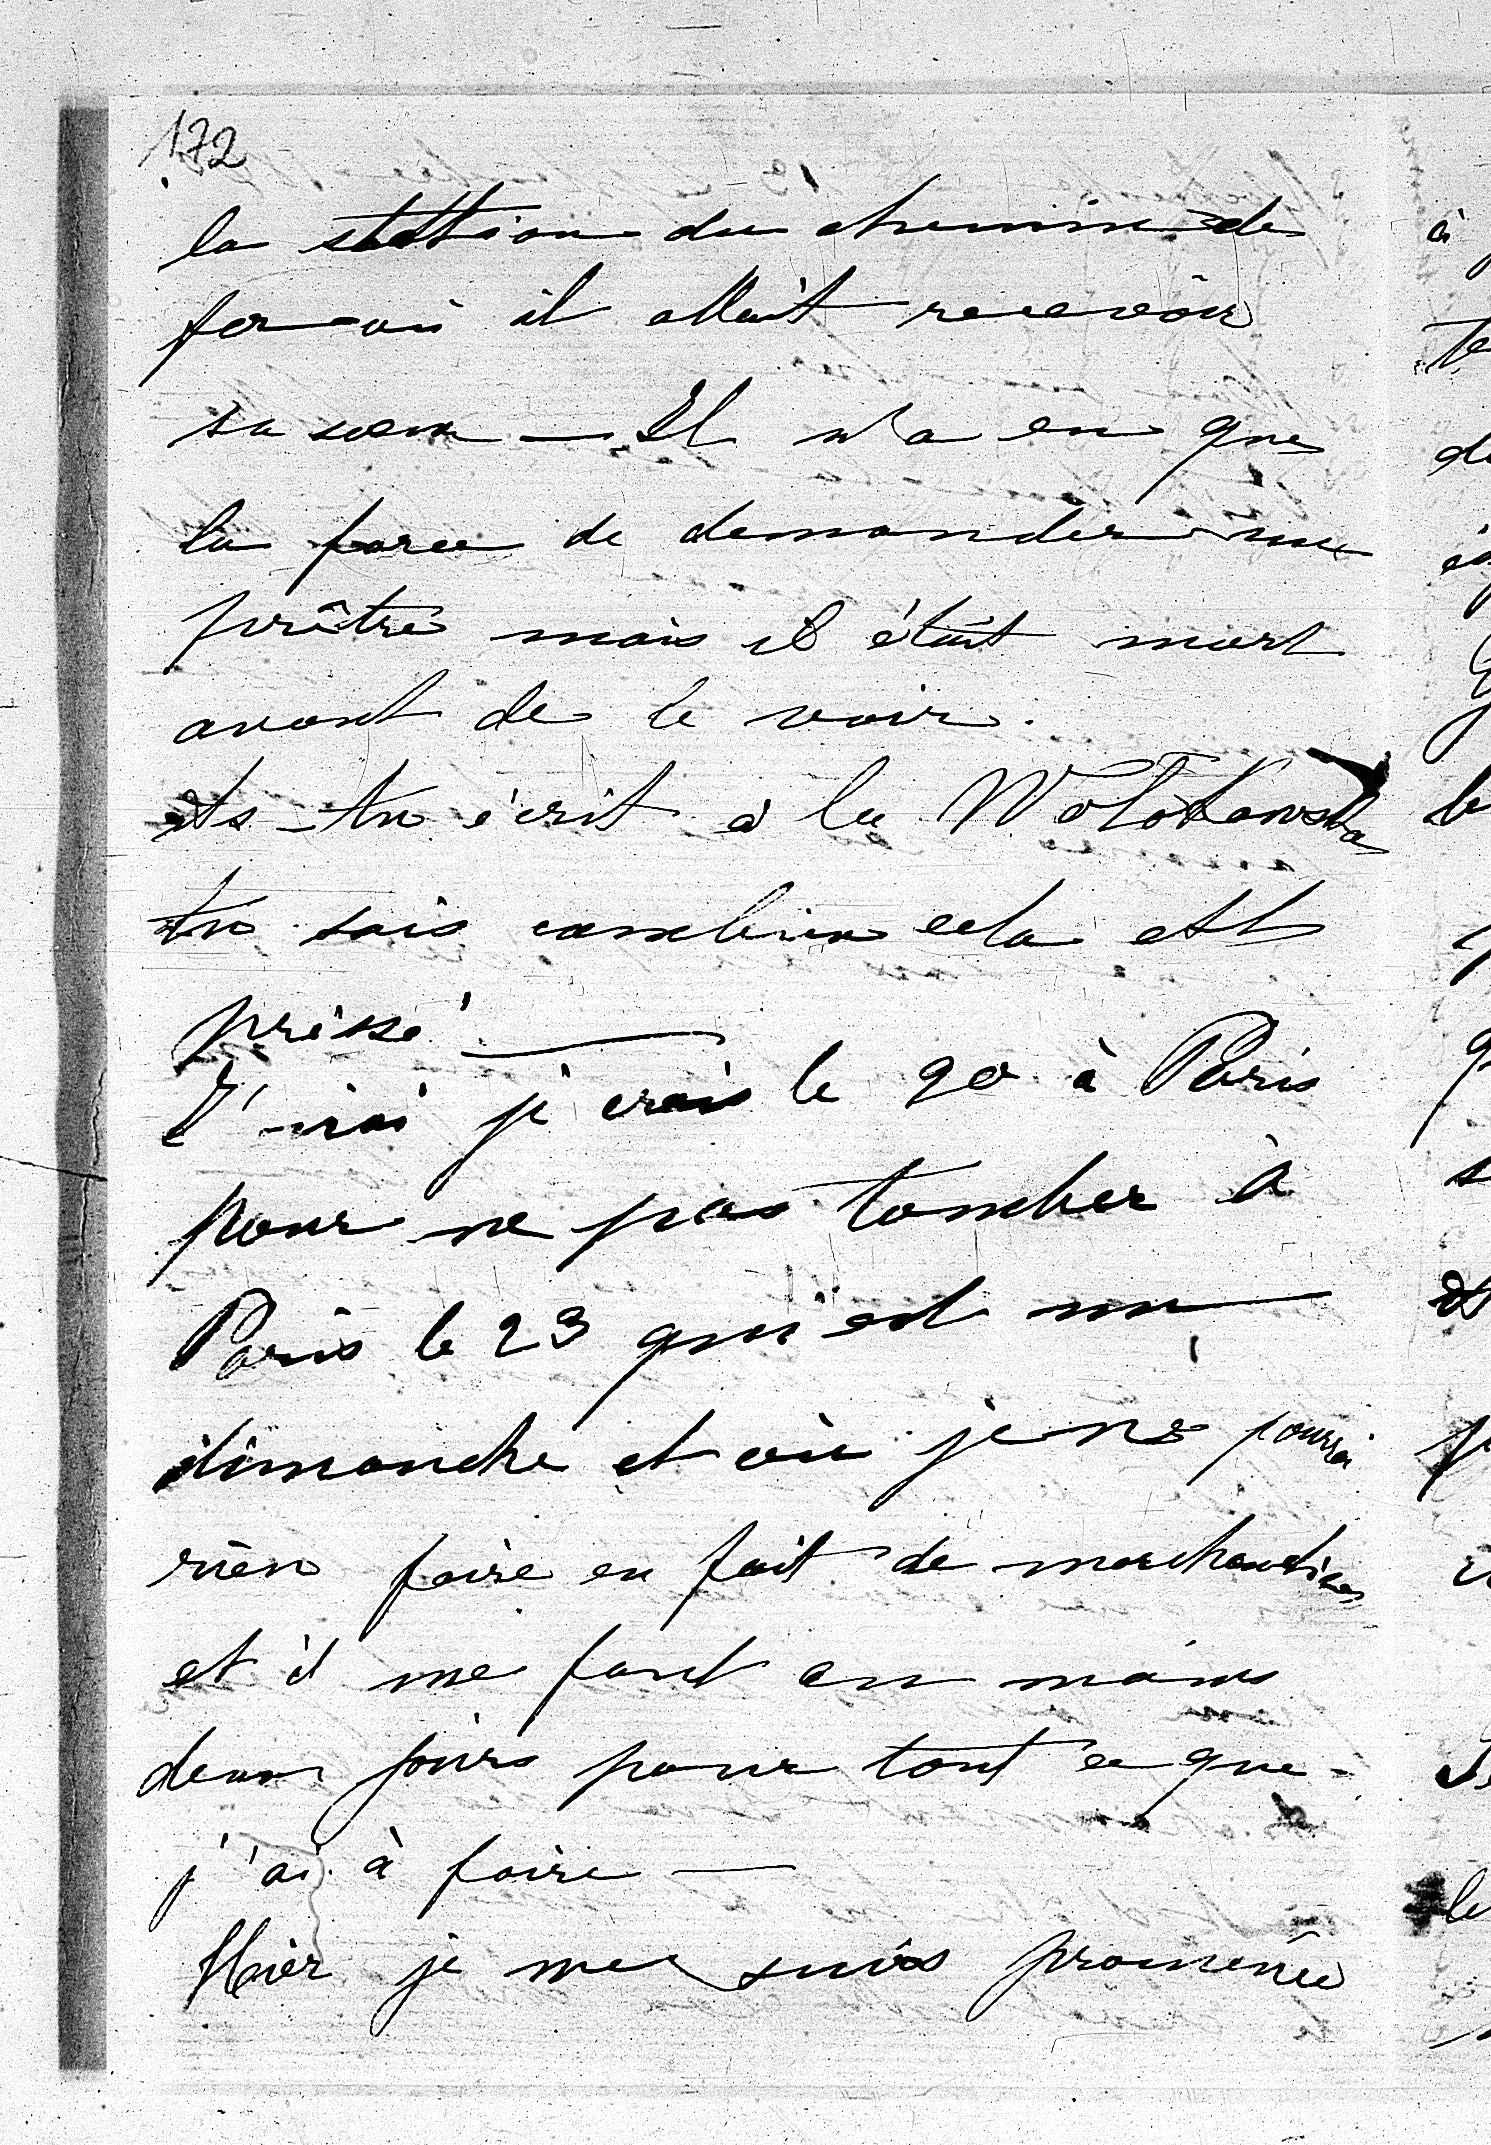 172
la station du chemin de
fer où il allait recevoir
sa sœur — Il n'a eu que
la force de demander un
prêtre mais il était mort
avant de le voir.
As-tu écrit à la Wolokowska
tu sais combien cela est
pressé —
J'irai je crois le 20 à Paris
pour ne pas tomber à
Paris le 23 qui est un
dimanche et où je ne pourrai
rien faire en fait de marchandises
et il me faut au moins
deux jours pour tout ce que
j'ai à faire —
Hier je me suis promenée